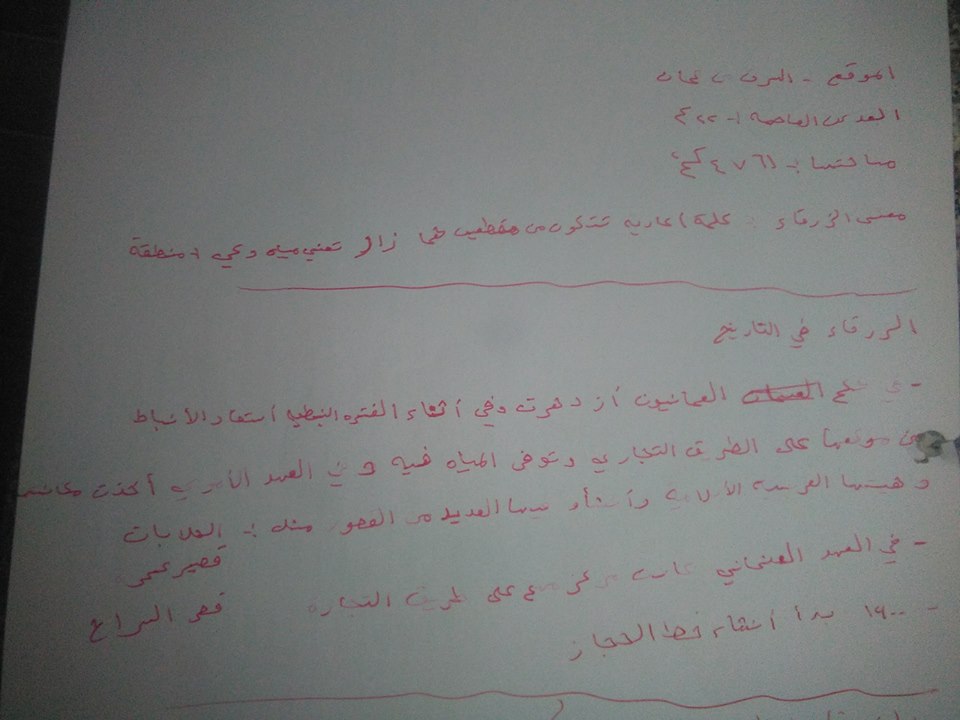 الموقع - الشرق من عمان
البعد عن العاصمة :- ٢٢ كم
مساحتها :- ٤٧٦١ كم٢
معنى الزرقاء : كلمة اعارية تتكون من مقطعين هما زار تعني مياه وكي : منطقة
الزرقاء في التاريخ
- في العمانيون أزدهرت وفي أثناء الفتره النبطيه أستفاد الأنباط
من موقعها على الطريق التجاري وتوفر المياه فيه و في العهد الأموي أخذت مكانتها
العربية الأسلامية وأنشأو فيها العديد من القصور مثل :- الحلابات
قصير عمره
- في العهد العثماني كانت مركز على طريق التجاره
قصر
- ١٩٠٠ بدأ أنشاء خط الحجاز